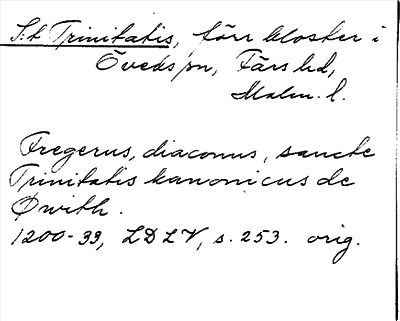 S:t Trinitatis, förr kloster i
Öveds sn, Färs hd,
Malm. l.
Fregerus, diaconus, sancte
Trinitatis kanonicus de
Øwith.
1200-39, LDLV, s. 253. orig.